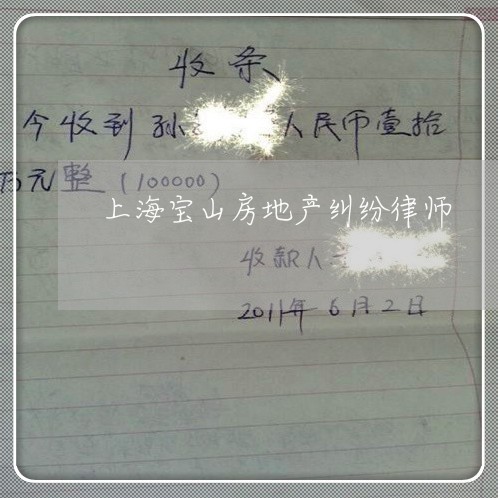 收条
今收到孙 人民币壹拾
万元整(100000)
上海宝山房地产纠纷律师
收款人
2011年6月2日